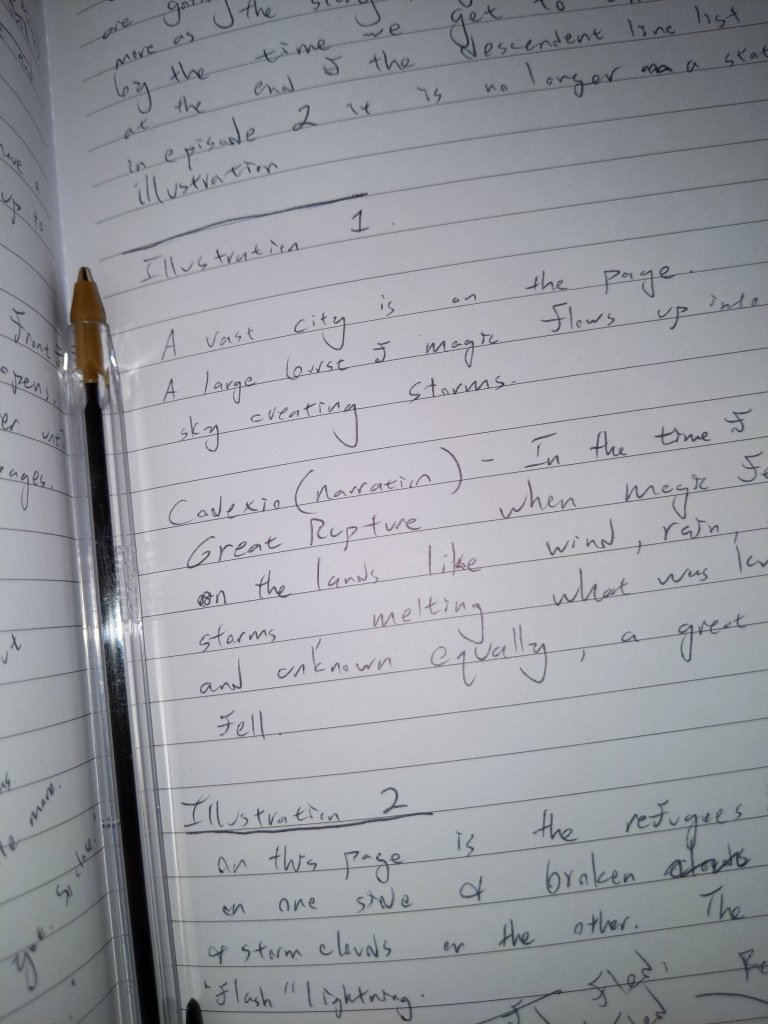 more as
by the time we get to
at the end of the descendent line list
in episode 2 it is no longer a
illustration
Illustration 1.
A vast city is on the page.
A large burst of magic flows up into
sky creating storms.
Codexia (narration) - In the time of
Great Rupture when magic
on the lands like wind, rain,
storms, melting what was
and unknown equally, a great
fell.
Illustration 2
on this page is the refugees
on one side of broken
of storm clouds on the other. The
"flash" lightning.
have a
up to
opens.
pages.
more.